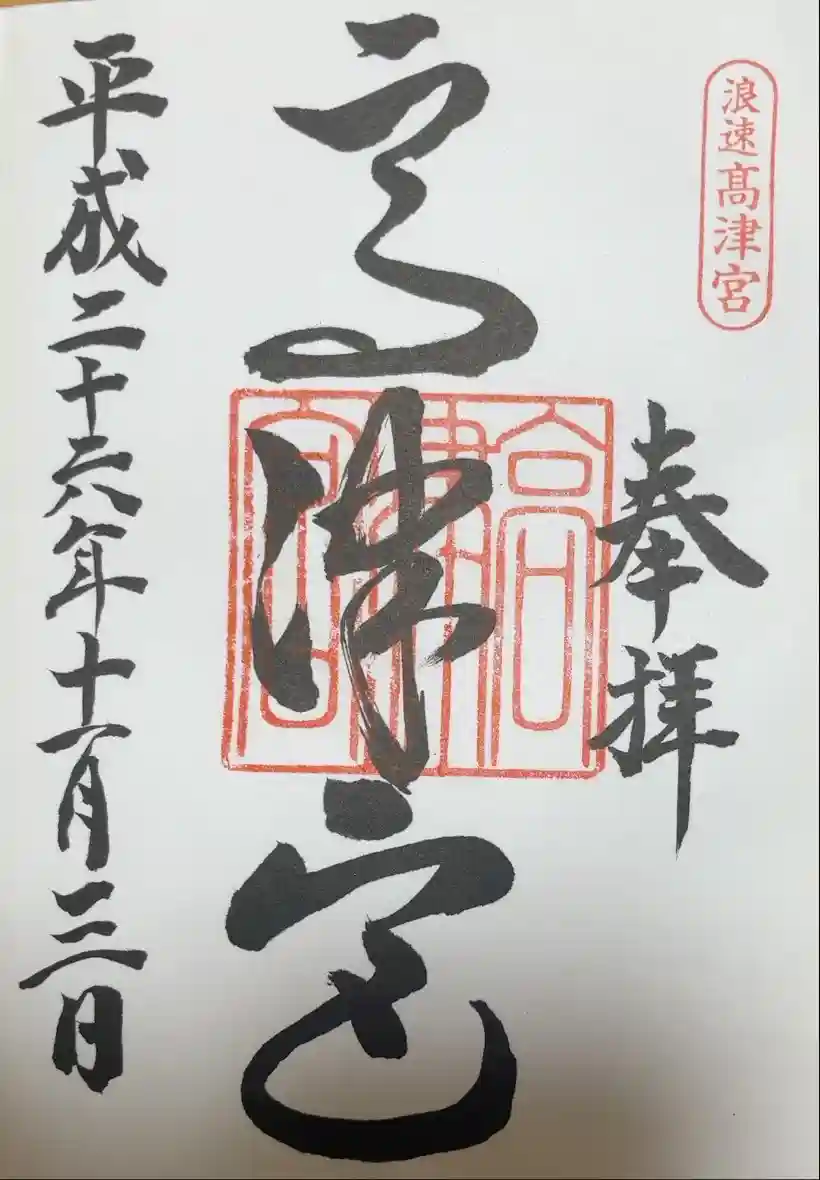 浪速髙津宮
奉拝
高津宮
高津宮
平成二十六年十一月三日